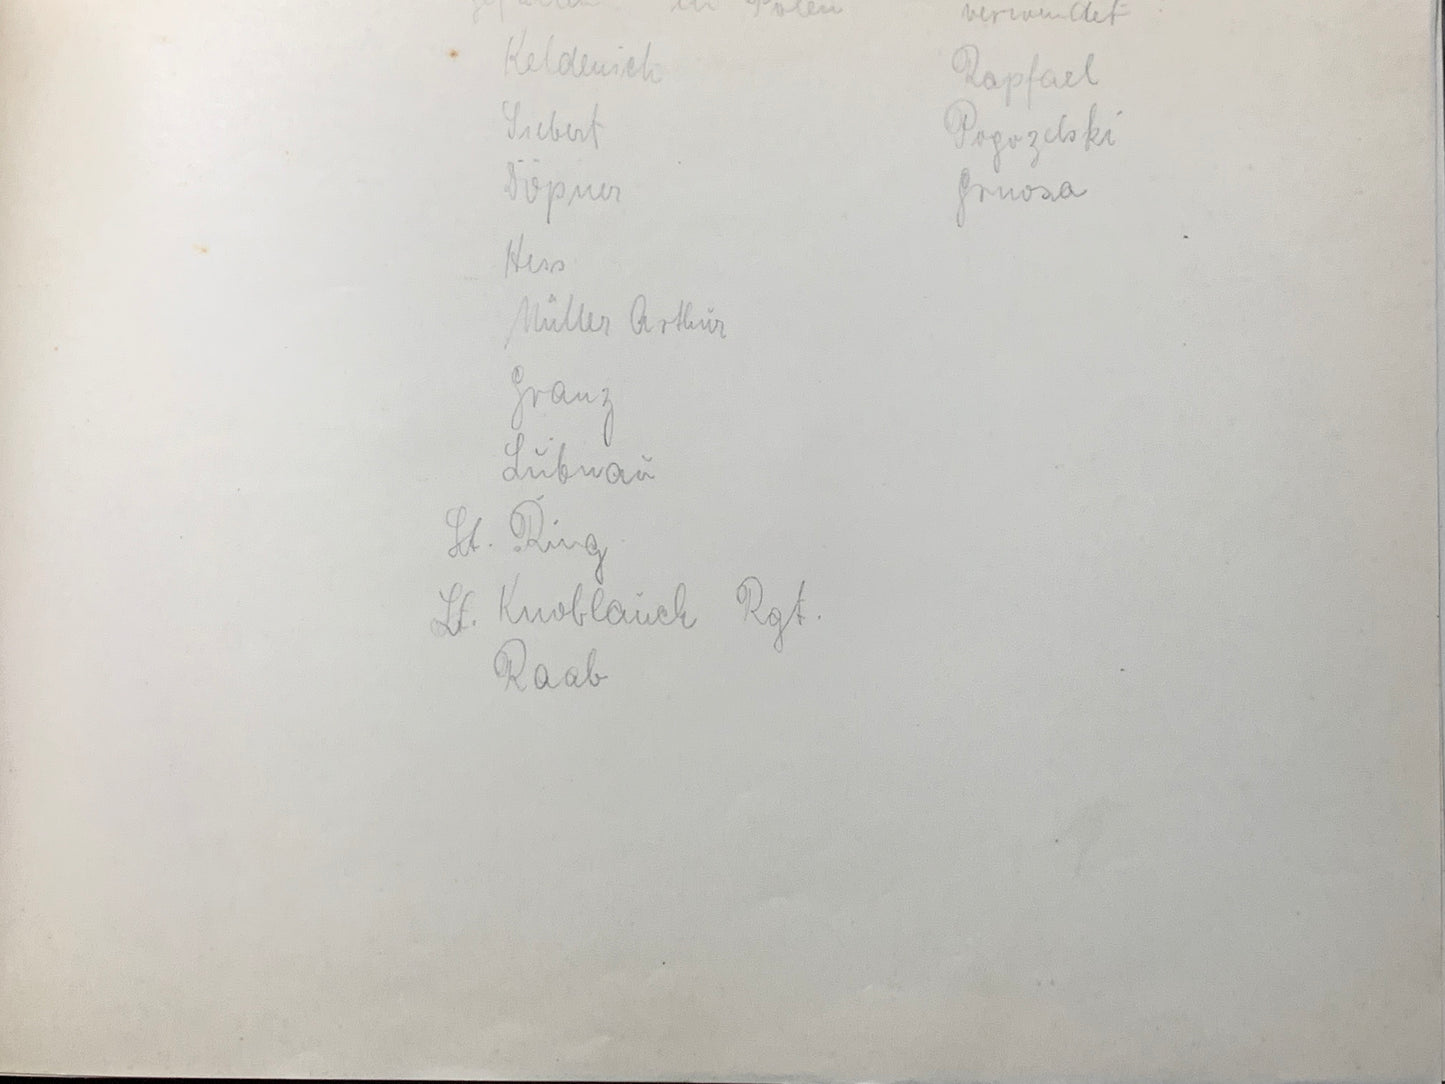 gefallen in Polen
verwundet
Keldenich
Siebert
Döpner
Hess
Müller Arthur
Granz
Lubnau
Lt. Ring
Lt. Knoblauch Rgt.
Raab
Rapfael
Pogozelski
Grnosa